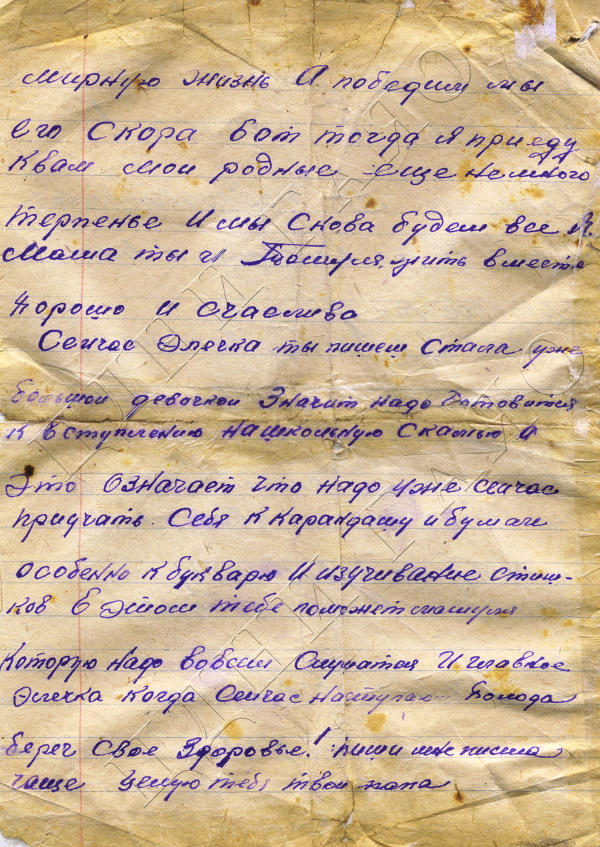 мирную жизнь А победим мы
его Скора вот тогда я приеду
квам мои родные еще немного
терпенье И мы Снова будем все Я.
Мама ты и жить вместе
Хорошо И счасливо
Сейчас Элечка ты пишеш Стала уже
большой девочкой Значит надо Готовится
К вступлению на школьную Скамью и
Это Означает что надо уже сейчас
приучать Себя К карандашу и бумаги
особенно к букварю И изучивание стиш-
ков в этом тебе поможет мамуля
Которую надо вовсем Слушатся И главное
Элечка когда Сейчас наступают Холода
береч Свое Здоровье! пиши мне писма
чаще целую тебя твой папа